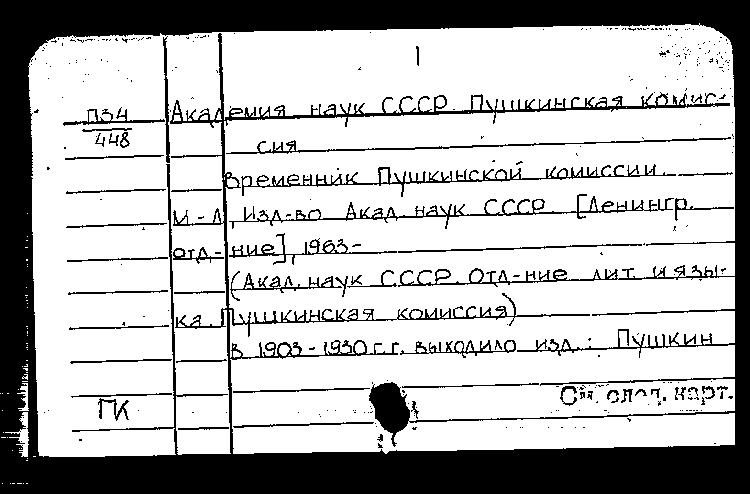 1
П34 Академия наук СССР. Пушкинская комис-
448
сия
Временник Пушкинской комиссии.
М-Л, Изд-во Акад. наук СССР. [Ленингр.
отд-ние], 1963-
(Акад. наук СССР. Отд-ние лит. и язы-
ка. Пушкинская комиссия)
В 1903-1930 г.г. выходило изд.: Пушкин
ГК
См. след. карт.